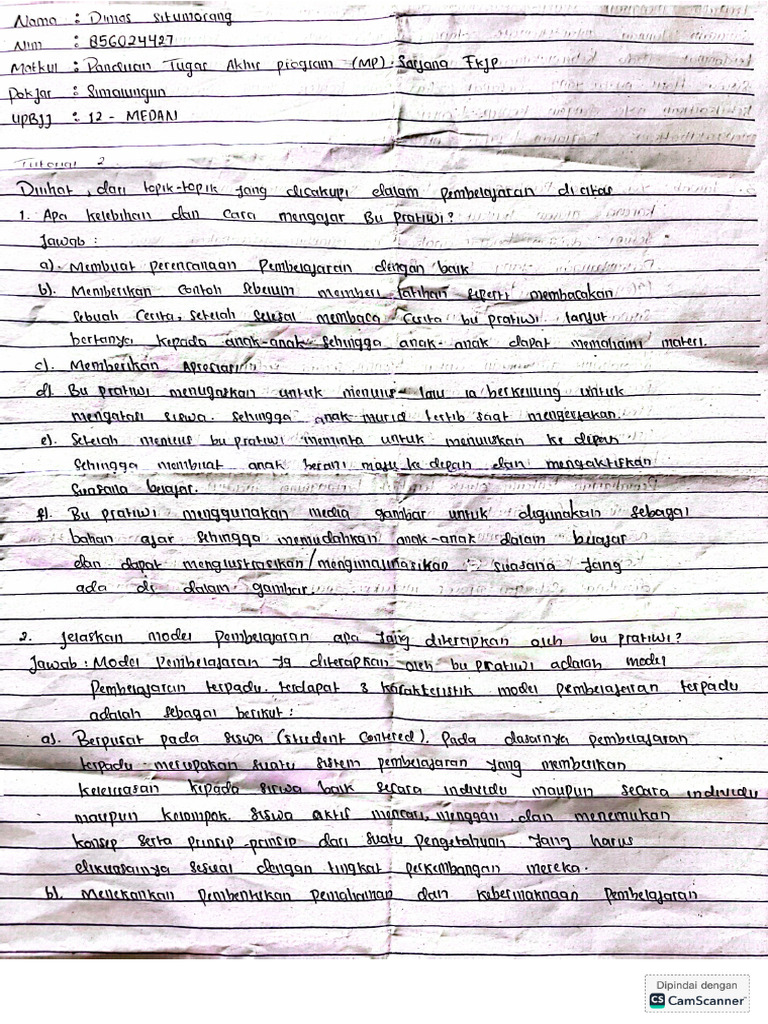 Nama : Dimas Situmorang
Nim : 856024427
Matkul : Panduan Tugas Akhir program (MP). Sarjana FKIP
Pokjar : Simalungun
UPBJJ : 12 - MEDAN
Tutorial 2
Dilihat, dari topik-topik yang dicakupi dalam pembelajaran di citas
1. Apa kelebihan dan cara mengajar Bu Pratiwi?
Jawab :
a). Membuat perencanaan Pembelajaran dengan baik
b). Memberikan contoh sebelum memberi latihan seperti membacakan
sebuah cerita, setelah selesai membaca cerita bu pratiwi lanjut
bertanya kepada anak-anak sehingga anak-anak dapat memahami materi.
c). Memberikan Apresiasi
d). Bu pratiwi menugaskan untuk menulis lalu ia berkeliling untuk
mengatasi siswa. Sehingga anak murid tertib saat mengerjakan.
e). Setelah menulis bu pratiwi meminta untuk menuliskan ke depan
sehingga membuat anak berani maju ke depan dan mengaktifkan
suasana belajar.
f). Bu pratiwi menggunakan media gambar untuk digunakan sebagai
bahan ajar sehingga memudahkan anak-anak dalam belajar
dan dapat mengilustrasikan/mengimajinasikan suasana yang
ada di dalam gambar.
2. Jelaskan model pembelajaran apa yang diterapkan oleh bu pratiwi?
Jawab : Model Pembelajaran yg diterapkan oleh bu pratiwi adalah model
Pembelajaran terpadu. terdapat 3 karakteristik model pembelajaran terpadu
adalah sebagai berikut :
a). Berpusat pada siswa (student centered). Pada dasarnya pembelajaran
terpadu merupakan suatu sistem pembelajaran yang memberikan
keleluasan kepada siswa baik secara individu maupun secara individu
maupun kelompok. siswa aktif mencari, menggali, dan menemukan
konsep serta prinsip-prinsip dari suatu pengetahuan yang harus
dikuasainya sesuai dengan tingkat perkembangan mereka.
b). Menekankan pembentukan pemahaman dan kebermaknaan pembelajaran
Dipindai dengan
CS CamScanner